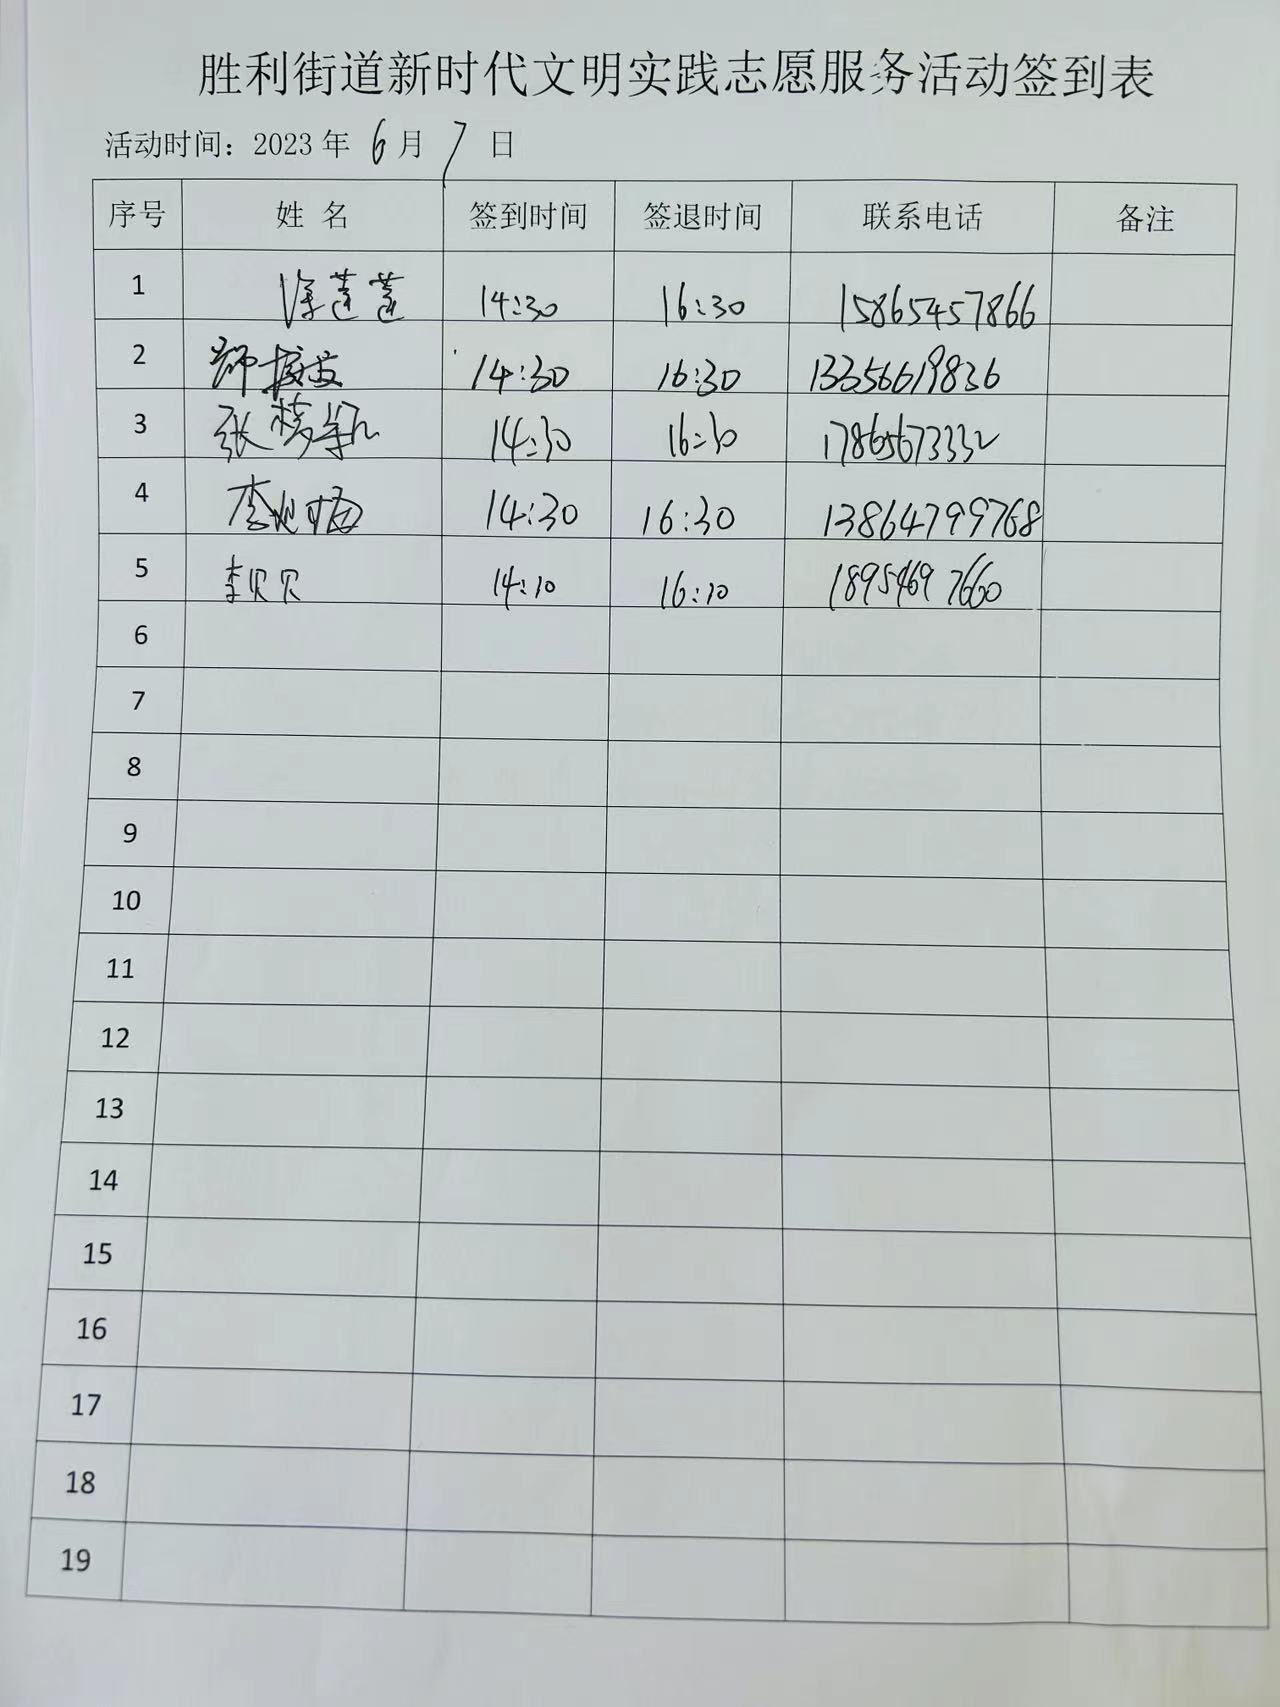 胜利街道新时代文明实践志愿服务活动签到表
活动时间：2023 年 6 月 7 日
序号 姓 名 签到时间 签退时间 联系电话 备注
1 徐莲莲 14:30 16:30 15865457866
2 14:30 16:30 13356619836
3 张 14:30 16:30 17865673332
4 李 14:30 16:30 13864799768
5 李贝贝 14:30 16:30 18954697660
6
7
8
9
10
11
12
13
14
15
16
17
18
19